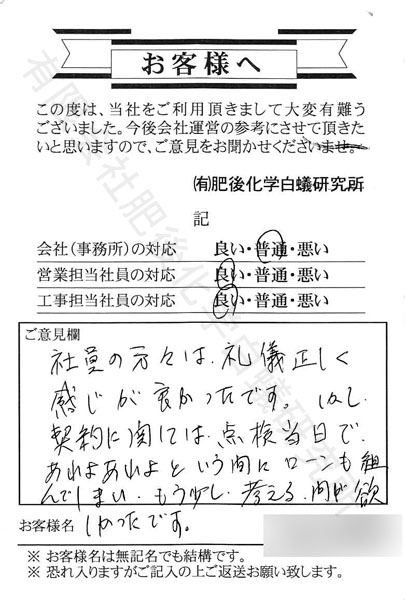 お客様へ
この度は、当社をご利用頂きまして大変有難う
ございました。今後会社運営の参考にさせて頂きた
いと思いますので、ご意見をお聞かせくださいませ。
㈲肥後化学白蟻研究所
記
会社(事務所)の対応 良い・普通・悪い
営業担当社員の対応 良い・普通・悪い
工事担当社員の対応 良い・普通・悪い
ご意見欄
社員の方々は、礼儀正しく
感じが良かったです。但し
契約に関しては、点検当日で、
あれよあれよという間にローンも組
んでしまい、もう少し、考える、間が欲
しかったです。
お客様名
※ お客様名は無記名でも結構です。
※ 恐れ入りますがご記入の上ご返送お願い致します。
有限会社肥後化学白蟻研究所